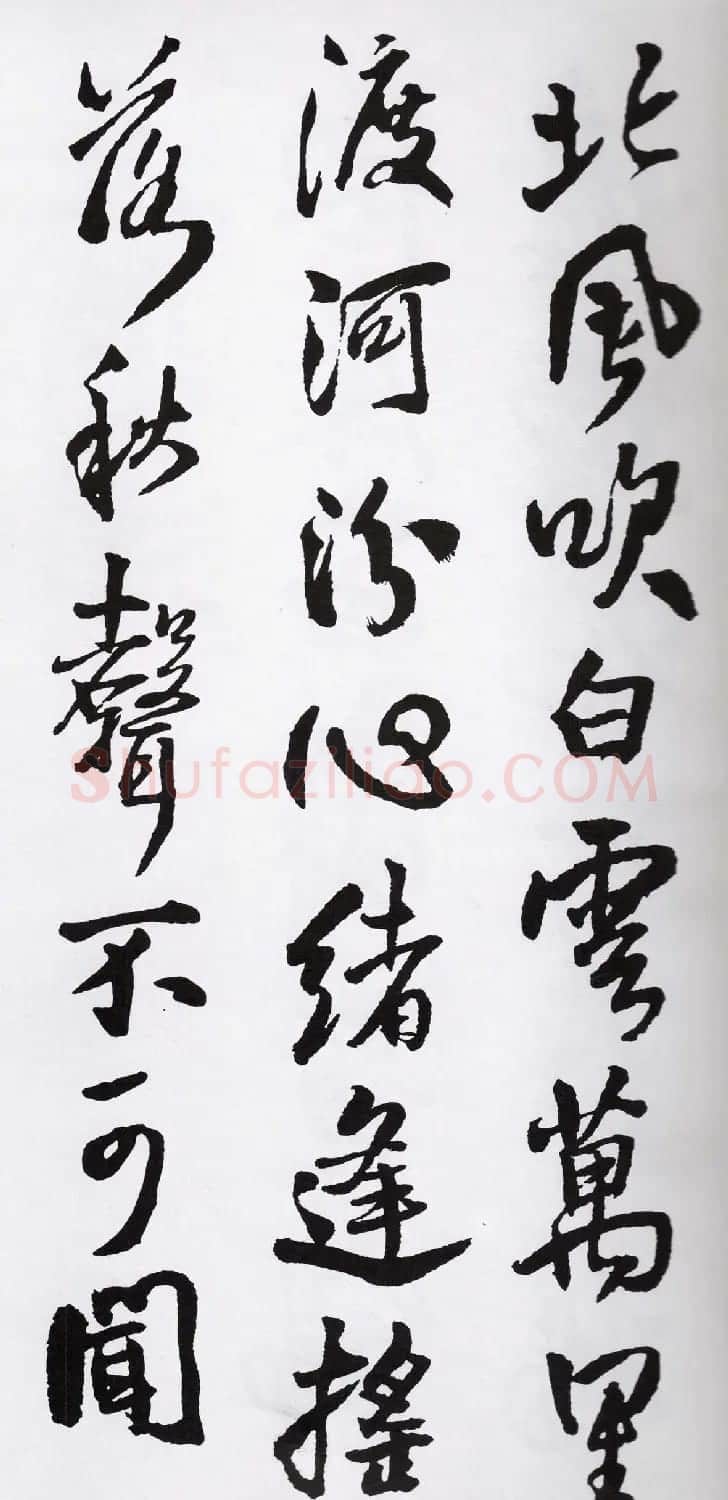 北風吹白雲萬里
渡河汾心緒逢搖
落秋聲不可聞
Shufaziliao.COM